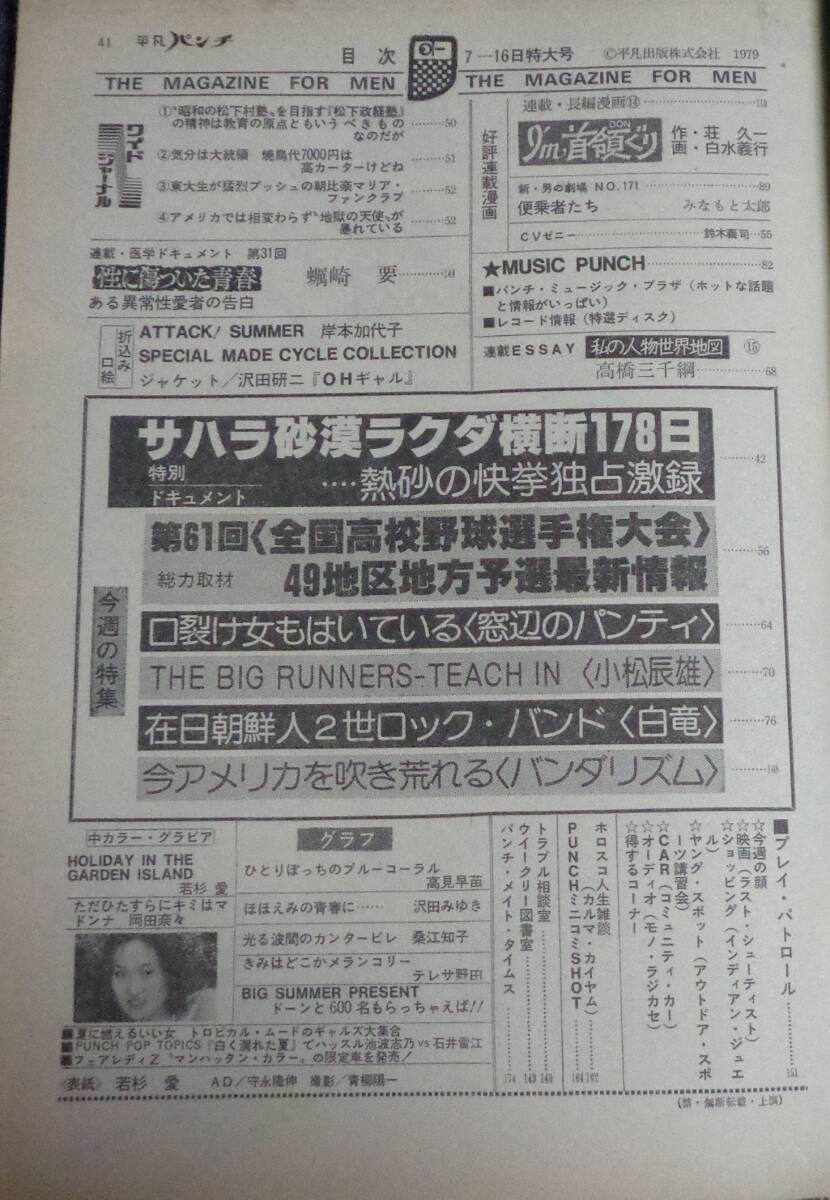 41 平凡パンチ
目次
7—16日特大号 ©平凡出版株式会社 1979
THE MAGAZINE FOR MEN
THE MAGAZINE FOR MEN
ワイドジャーナル
①〝昭和の松下村塾〟を目指す『松下政経塾』
の精神は教育の原点ともいうべきもの
なのだが……50
②気分は大統領 焼鳥代7000円は
高カーターけどね……51
③東大生が猛烈プッシュの朝比奈マリア・
ファンクラブ……52
④アメリカでは相変わらず〝地獄の天使〟が
暴れている……52
連載・医学ドキュメント 第31回
性に傷ついた青春 蠣崎 要……144
ある異常性愛者の告白
折込み口絵
ATTACK! SUMMER 岸本加代子
SPECIAL MADE CYCLE COLLECTION
ジャケット／沢田研二『OHギャル』
好評連載漫画
連載・長編漫画⑭……
I'm・首領ぐり
DON
作・荘 久一
画・白水義行
新・男の劇場 NO.171……89
便乗者たち みなもと太郎
CVゼニー……鈴木義司…55
★MUSIC PUNCH……82
■パンチ・ミュージック・プラザ（ホットな話題
と情報がいっぱい）
■レコード情報（特選ディスク）
連載ESSAY 私の人物世界地図 ⑮
高橋三千綱……68
今週の特集
サハラ砂漠ラクダ横断178日
特別
ドキュメント
‥‥熱砂の快挙独占激録
……42
第61回〈全国高校野球選手権大会〉
総力取材 49地区地方予選最新情報
……56
口裂け女もはいている〈窓辺のパンティ〉……64
THE BIG RUNNERS-TEACH IN 〈小松辰雄〉……70
在日朝鮮人2世ロック・バンド〈白竜〉……76
今アメリカを吹き荒れる〈バンダリズム〉……148
中カラー・グラビア
HOLIDAY IN THE
GARDEN ISLAND
若杉 愛
ただひたすらにキミはマ
ドンナ 岡田奈々
グラフ
ひとりぼっちのブルーコーラル
高見早苗
ほほえみの青春に…… 沢田みゆき
光る波間のカンタービレ 桑江知子
きみはどこかメランコリー
テレサ野田
BIG SUMMER PRESENT
ドーンと600名もらっちゃえば!!
■夏に燃えるいい女 トロピカル・ムードのギャルズ大集合
■PUNCH POP TOPICS『白く濡れた夏』でハッスル池波志乃vs石井雪江
■フェアレディZ〝マンハッタン・カラー〟の限定車を発売!
〈表紙〉若杉 愛 AD／守永隆伸 撮影／青柳陽一
■プレイ・パトロール……151
☆今週の顔
☆映画（ラスト・シューティスト）
☆ショッピング（インディアン・ジュエ
ル）
☆ヤング・スポット（アウトドア・スポ
ーツ講習会）
☆CAR（コミュニティ・カー）
☆オーディオ（モノ・ラジカセ）
☆得するコーナー
ホロスコ人生雑談
（カルマ・カイヤム）……162
PUNCHミニコミSHOT……164
トラブル相談室……140
ウイークリー図書室……143
パンチ・メイト・タイムス……174
（禁・無断転載・上演）